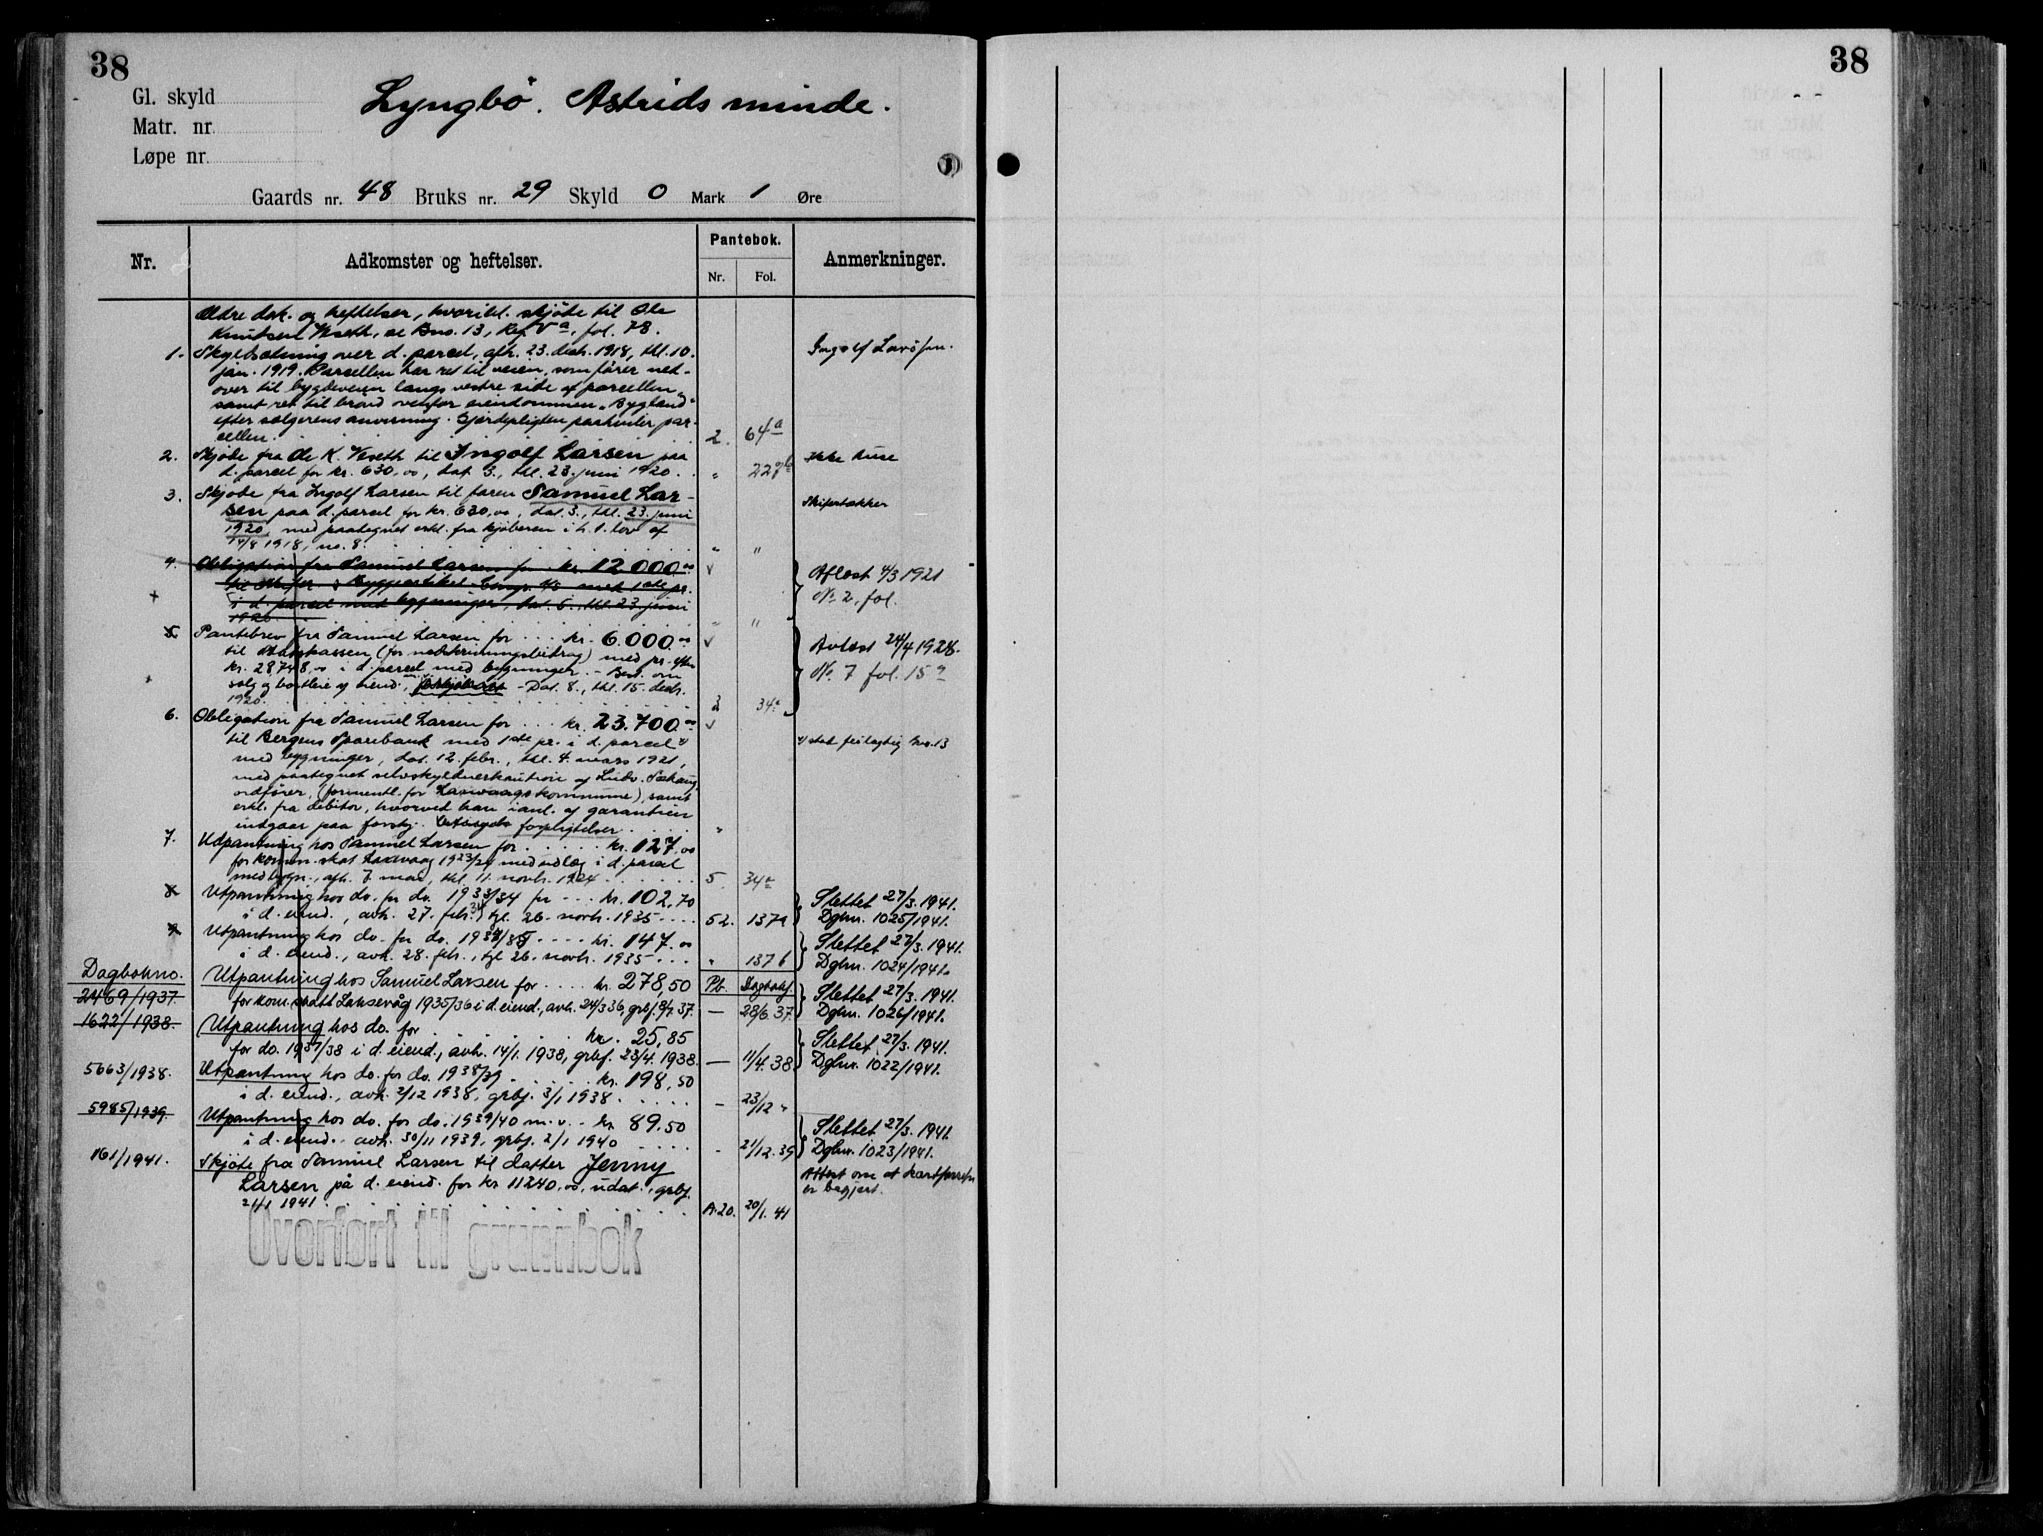 38
38
Gl. skyld
Matr. nr.
Løpe nr.
Lyngbö. Astrids minde.
Gaards nr. 48 Bruks nr. 29 Skyld 0 Mark 1 Øre
Nr.
Adkomster og heftelser.
Pantebok.
Nr. Fol.
Anmerkninger.
Ældre dok. og heftelser, hvoribl. skjöte til Ole
Knutsen Vseth, se Bno. 13, Reg. V a, fol. 78.
1. Skyldsætning over d. parcel, afh. 23. decb. 1918, thl. 10.
jan. 1919. Parcellen har ret til veien, som förer ned-
over til bygdeveien langs vestre side af parcellen,
samt ret til brönd ovenfor eiendommen "Bygland"
efter sælgerens anvisning. Gjerdepligten paahviler par-
cellen. 2. 64 a
Ingolf Larsen.
2. Skjöde fra Ole K. Vseth til Ingolf Larsen paa
d. parcel for kr. 630,00, dat. 3., thl. 23. juni 1920. " 227 b
Ikke huse
3. Skjöde fra Ingolf Larsen til faren Samuel Lar-
sen paa d. parcel for kr. 630,00, dat. 3., thl. 23. juni
1920, med paategnet erkl. fra kjöberen i h. t. lov af
14/8 1918, no. 8. " "
Skifertækker
4. Obligation fra Samuel Larsen for kr. 12000.00
til Skifer & Byggeartikel Comp. A/S med 1ste pr.
i d. parcel med bygninger, dat. 5., thl. 23 juni
1920. " "
Aflæst 4/3 1921
No 2, fol.
5. Pantebrev fra Samuel Larsen for ... kr. 6.000.00
til Statskassen (for nedskrivningsbidrag) med pr. efter
kr. 28748,00 i d. parcel med bygninger. - Best. om
salg og bortleie af eiend., - Dat. 8., thl. 15. decb.
1920. 3 34 a
Avlæst 24/4 1928.
No. 7 fol. 15 a
6. Obligation fra Samuel Larsen for ... kr. 23.700.00
til Bergens Sparebank med 1ste pr. i d. parcel x)
med bygninger, dat. 12. febr., thl. 4. mars 1921,
med paategnet selvskyldnerkaution af Ludv.
ordförer, (formentl. for Laxevaags kommune), samt
erkl. fra debitor, hvorved han i anl. af garantien
indgaar paa forskj. forpligtelser. "
x) stat feilagtig Bno. 13
7. Udpantning hos Samuel Larsen for ... kr. 127,00
for komm. skat Laxevaag 1923/24 med udlæg i d. parcel
med bygn., afh. 7. mai, thl. 11. novbr. 1924 ... 5. 34 a
8. Utpantning hos do. for do. 1933/34 for ... kr. 102,70
i d. eiend., avh. 27. febr. 34, tgl. 26. novbr. 1935 ... 52. 137 a
Slettet 27/3. 1941.
Dgbnr. 1025/1941.
9. Utpantning hos do. for do. 1934/35 ... kr. 147,00
i d. eiend., avh. 28. febr., tgl. 26. novbr. 1935 ... " 137 b
Slettet 27/3. 1941.
Dgbnr. 1024/1941.
Dagbokno.
2469/1937. Utpantning hos Samuel Larsen for ... kr. 278,50 Pb. Dagbokf.
for kom. skatt Laksevåg 1935/36 i d. eiend., avh. 24/3 36, grbf. 8/7. 37. — 28/6. 37.
Slettet 27/3. 1941.
Dgbnr. 1026/1941.
1622/1938. Utpantning hos do. for ... kr. 25,85
for do. 1937/38 i d. eiend., avh. 14/1. 1938, grbf. 23/4. 1938. — 11/4. 38
Slettet 27/3. 1941.
Dgbnr. 1022/1941.
5663/1938. Utpantning hos do. for do. 1938/39 ... kr. 198,50
i d. eiend., avh. 2/12 1938, grbf. 3/1 1938. — 23/12 "
5985/1939. Utpantning hos do. for do. 1939/40 m. v. .. kr. 89,50
i d. eiend., avh. 30/11 1939, grbf. 2/1 1940 ... - 21/12. 39
Slettet 27/3. 1941.
Dgbnr. 1023/1941.
161/1941. Skjöte fra Samuel Larsen til datter Jenny
Larsen på d. eiend. for kr. 11240,00, udat., grbf.
21/1 1941. A. 20. 20/1. 41
Attest om at kartforretn.
er begjært.
Overført til grunnbok